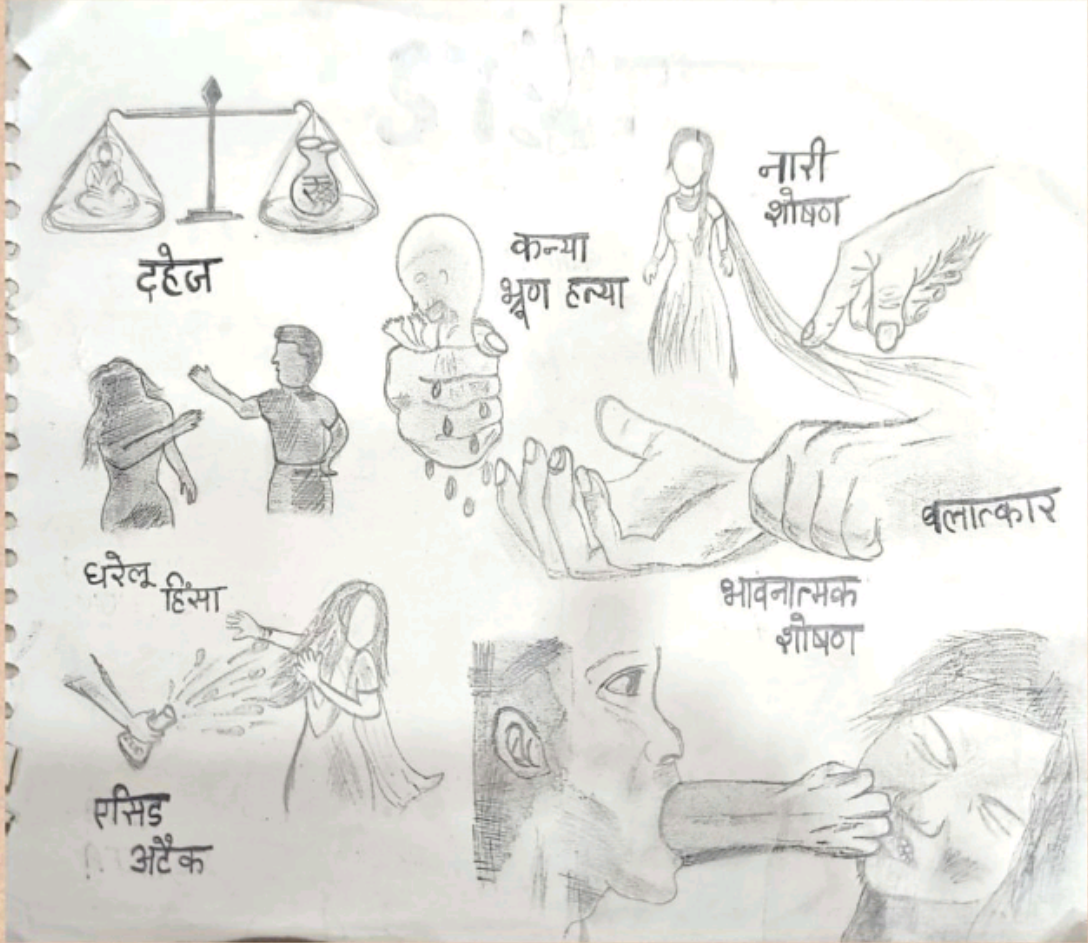 दहेज
कन्या
भ्रूण हत्या
नारी
शोषण
घरेलू
हिंसा
बलात्कार
भावनात्मक
शोषण
एसिड
अटैक